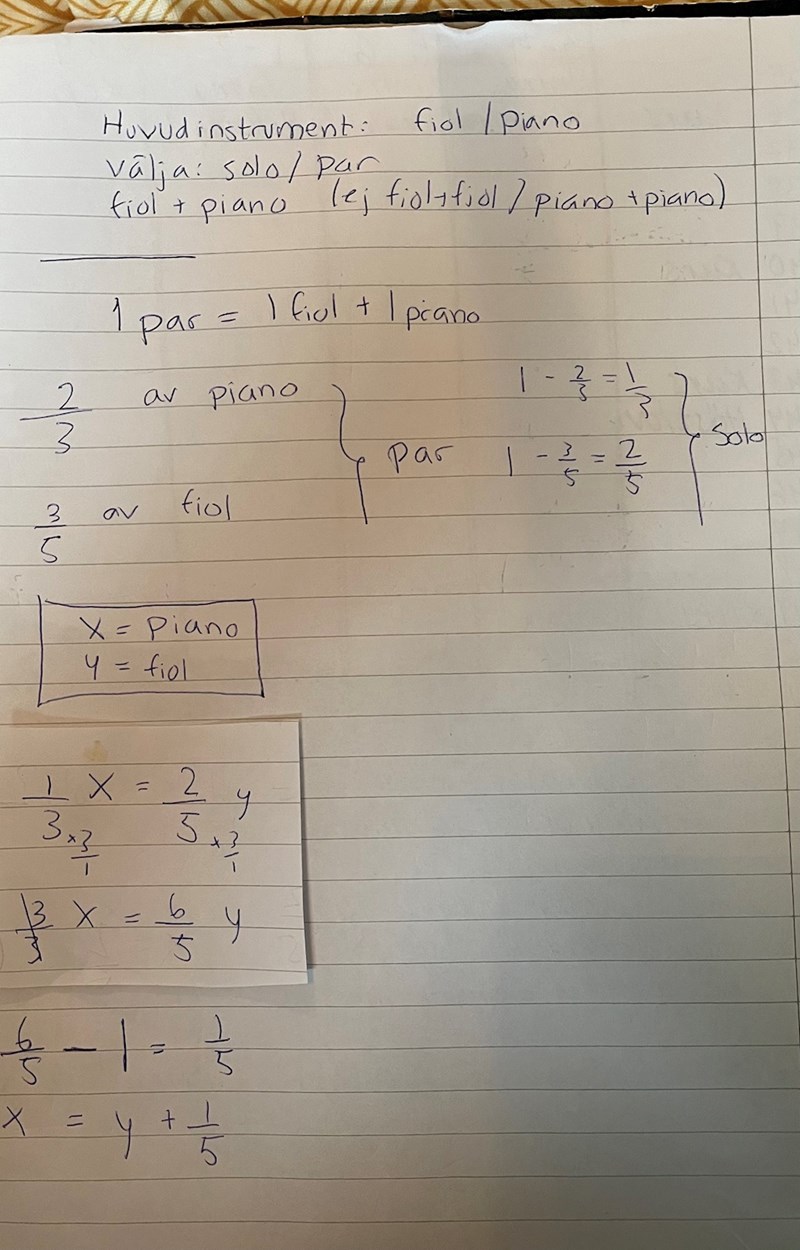 Huvudinstrument: fiol / piano
välja: solo / par
fiol + piano (ej fiol+fiol / piano + piano)
1 par = 1 fiol + 1 piano
2/3 av piano
3/5 av fiol
par
1 - 2/3 = 1/3
1 - 3/5 = 2/5
Solo
x = Piano
y = fiol
1/3 x = 2/5 y
× 3/1 × 3/1
3/3 x = 6/5 y
6/5 - 1 = 1/5
x = y + 1/5